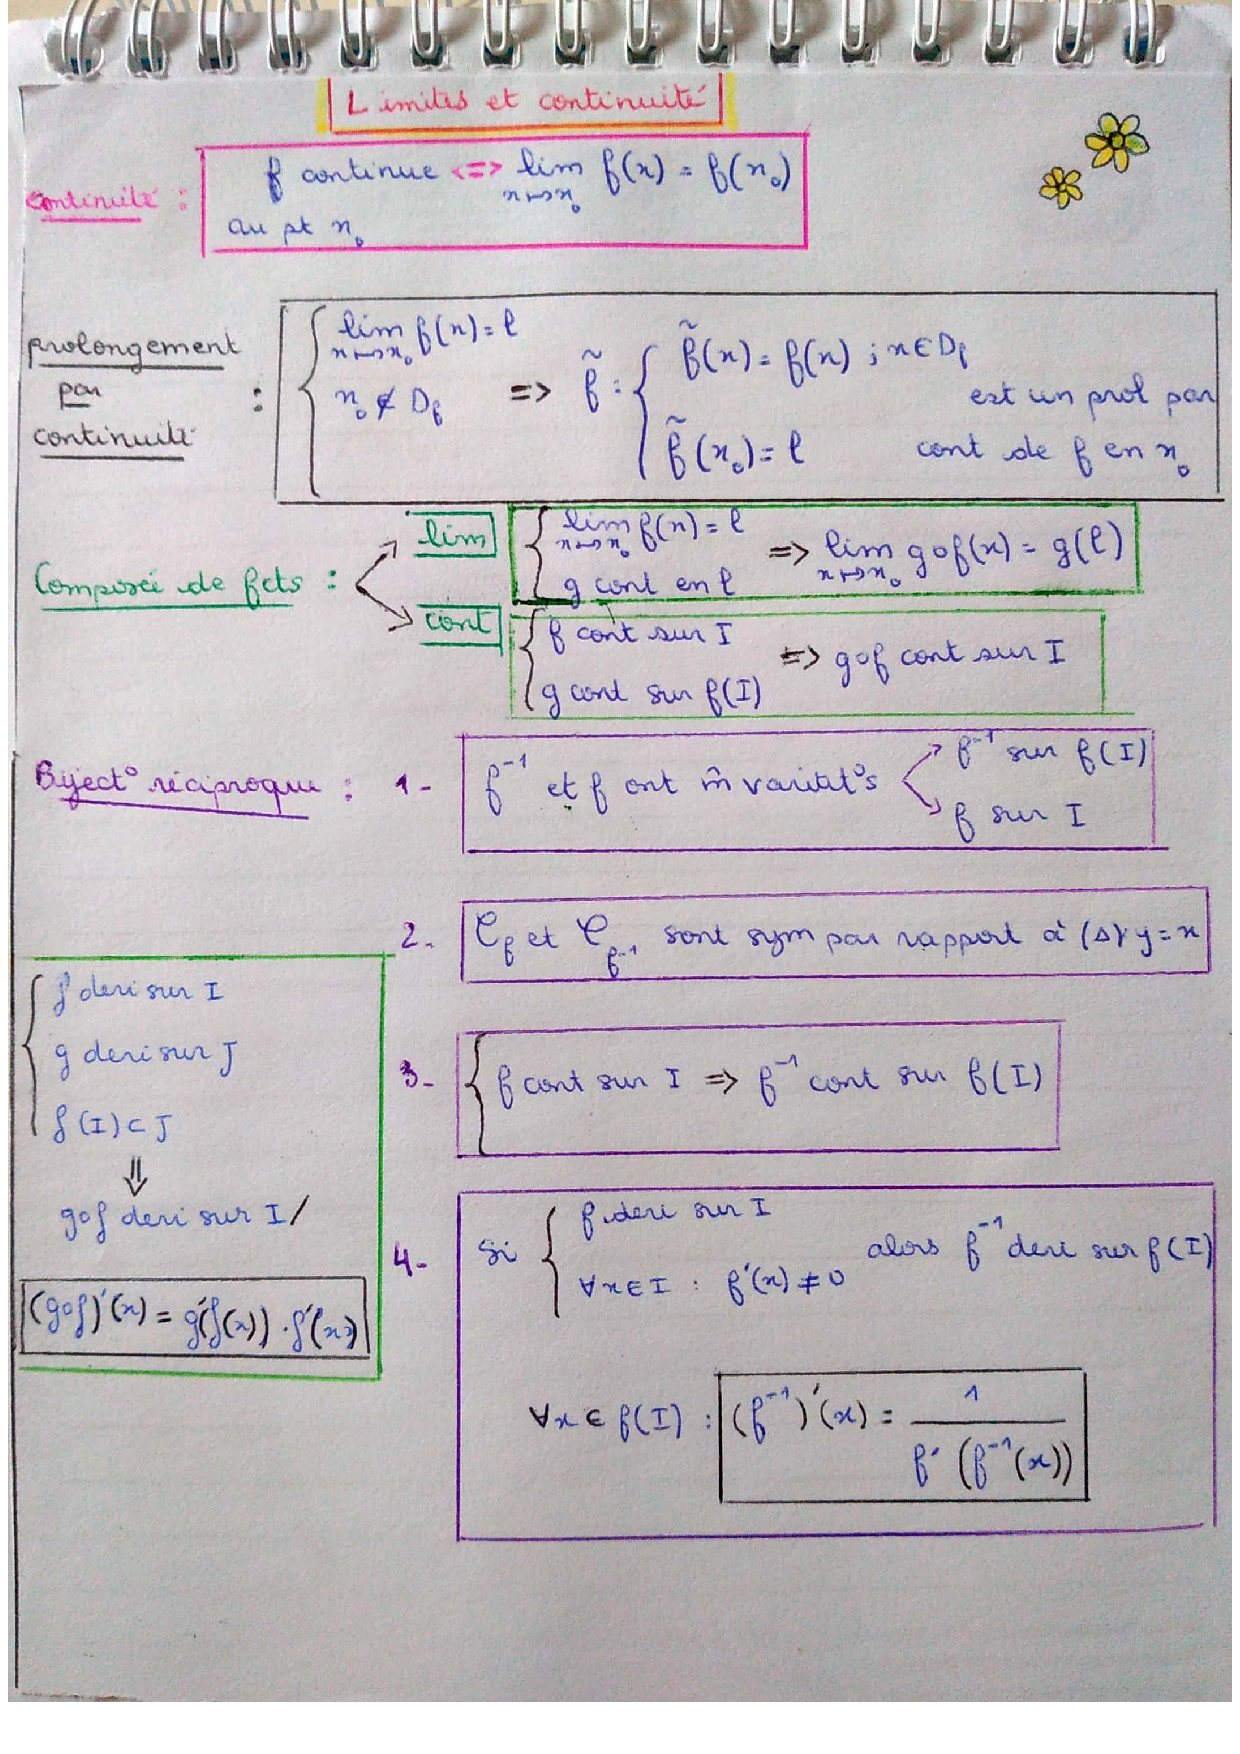 Limites et continuité
continuité : f continue <=> lim f(x) = f(x₀)
x↦x₀
au pt x₀
prolongement par continuité : { lim f(x) = l
x↦x₀
x₀ ∉ D_f => f̃ : { f̃(x) = f(x) ; x ∈ D_f
f̃(x₀) = l
est un prol par
cont de f en x₀
Composée de fcts :
lim { lim f(x) = l
x↦x₀
g cont en l => lim gof(x) = g(l)
x↦x₀
cont { f cont sur I
g cont sur f(I) => gof cont sur I
Biject° réciproque : 1- f⁻¹ et f ont m̂ variat°s
f⁻¹ sur f(I)
f sur I
2- C_f et C_f⁻¹ sont sym par rapport à (Δ): y = x
3- { f cont sur I => f⁻¹ cont sur f(I)
4- Si { f deri sur I
∀x ∈ I : f'(x) ≠ 0
alors f⁻¹ deri sur f(I)
∀x ∈ f(I) : (f⁻¹)'(x) = 1 / f'(f⁻¹(x))
{ f deri sur I
g deri sur J
f(I) ⊂ J
⇓
gof deri sur I /
(gof)'(x) = g'(f(x)) . f'(x)